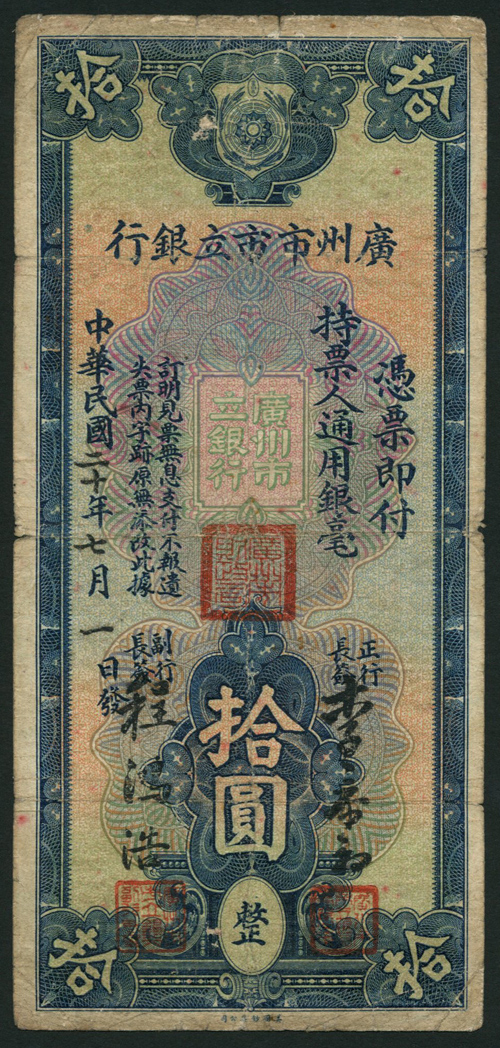 拾
拾
廣州市市立銀行
憑票即付
持票人通用銀毫
廣州市
立銀行
訂明見票無息支付不報遺
失票內字跡原無添改此據
中華民國二十年七月一日發
正行
長簽
副行
長簽
拾圓
整
拾
拾